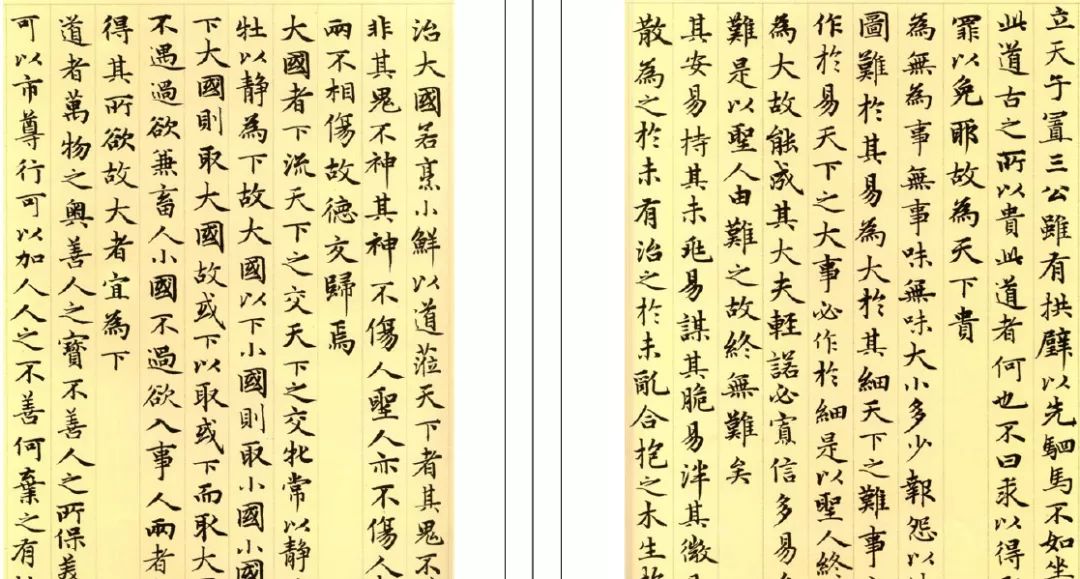 治大國若烹小鮮以道蒞天下者其鬼不
非其鬼不神其神不傷人聖人亦不傷人
兩不相傷故德交歸焉
大國者下流天下之交天下之交牝常以靜
牡以靜為下故大國以下小國則取小國小國
下大國則取大國故或下以取或下而取大
不過過欲兼畜人小國不過欲入事人兩者
得其所欲故大者宜為下
道者萬物之奧善人之寶不善人之所保美
可以市尊行可以加人人之不善何棄之有
立天子置三公雖有拱璧以先駟馬不如坐
此道古之所以貴此道者何也不曰求以得
罪以免耶故為天下貴
為無為事無事味無味大小多少報怨以
圖難於其易為大於其細天下之難事
作於易天下之大事必作於細是以聖人終
為大故能成其大夫輕諾必寡信多易
難是以聖人由難之故終無難矣
其安易持其未兆易謀其脆易泮其微
散為之於未有治之於未亂合抱之木生